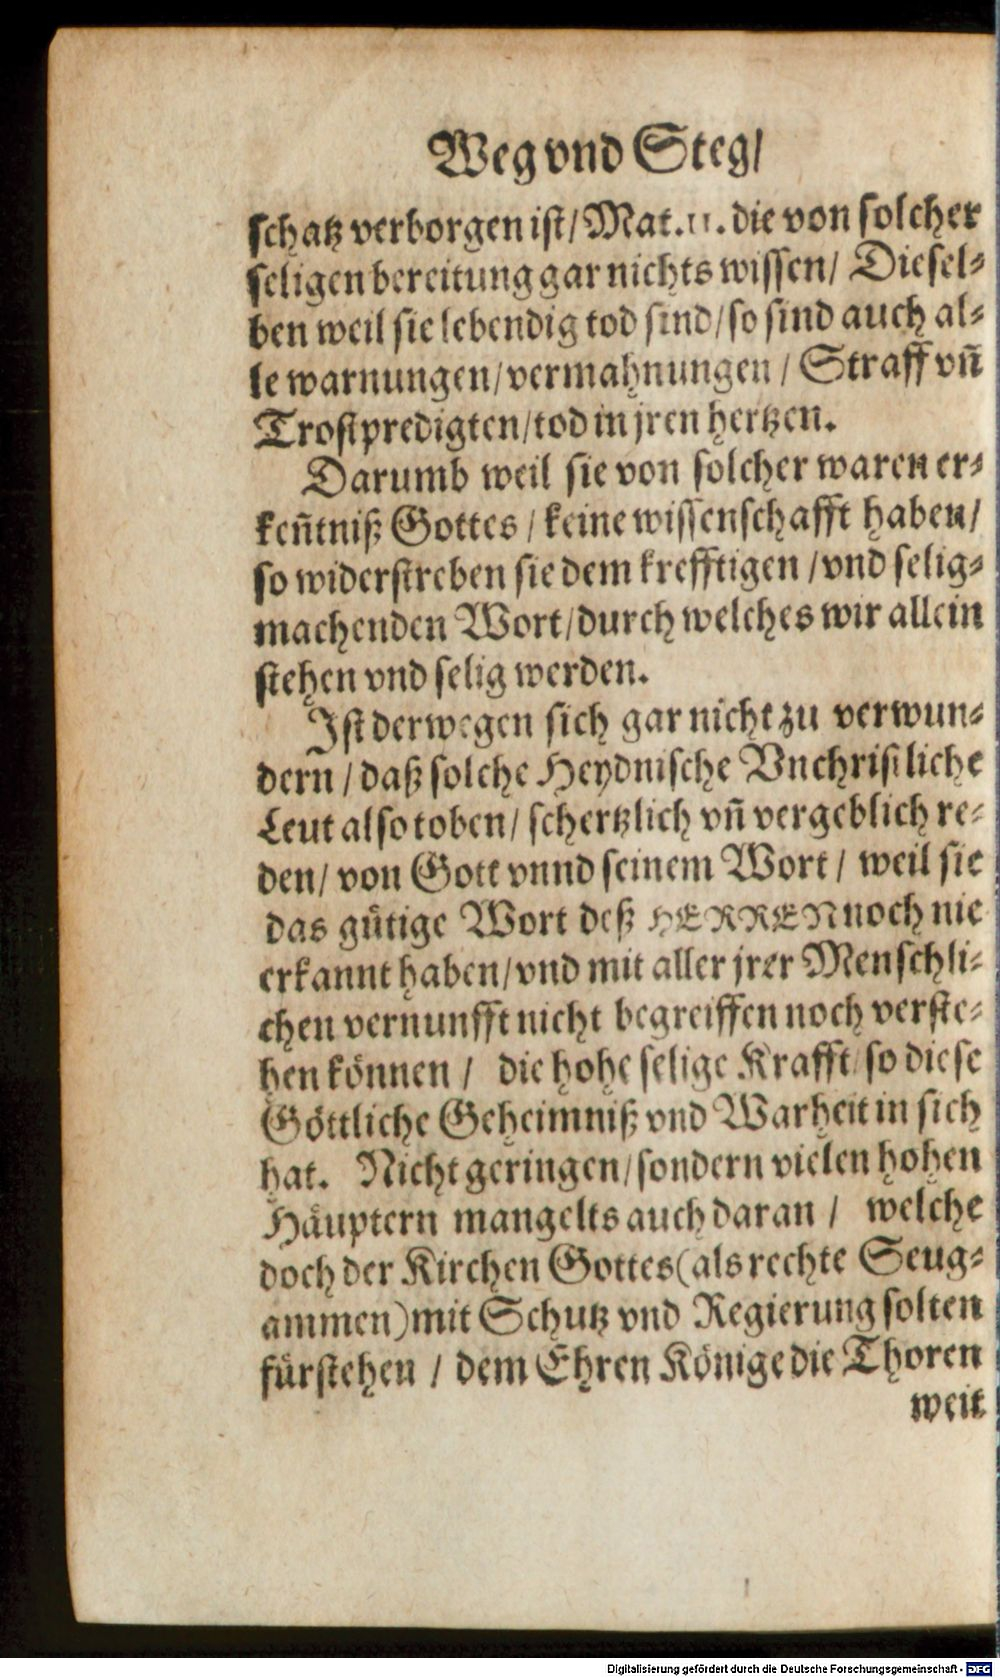 Weg vnd Steg/
schatz verborgen ist/ Mat. 11. die von solcher
seligen bereitung gar nichts wissen/ Diesel⸗
ben weil sie lebendig tod sind/ so sind auch al⸗
le warnungen/ vermahnungen / Straff vñ
Trostpredigten/ tod in jren hertzen.
Darumb weil sie von solcher waren er⸗
keñtniß Gottes / keine wissenschafft haben/
so widerstreben sie dem krefftigen / vnd selig⸗
machenden Wort/ durch welches wir allein
stehen vnd selig werden.
Ist derwegen sich gar nicht zu verwun⸗
dern / daß solche Heydnische Vnchristliche
Leut also toben/ schertzlich vñ vergeblich re⸗
den/ von Gott vnnd seinem Wort / weil sie
das gütige Wort deß HERREN noch nie
erkannt haben/ vnd mit aller jrer Menschli⸗
chen vernunfft nicht begreiffen noch verste⸗
hen können / die hohe selige Krafft/ so diese
Göttliche Geheimniß vnd Warheit in sich
hat. Nicht geringen/ sondern vielen hohen
Häuptern mangelts auch daran / welche
doch der Kirchen Gottes (als rechte Seug⸗
ammen) mit Schutz vnd Regierung solten
fürstehen / dem Ehren Könige die Thoren
weit
Digitalisierung gefördert durch die Deutsche Forschungsgemeinschaft - DFG